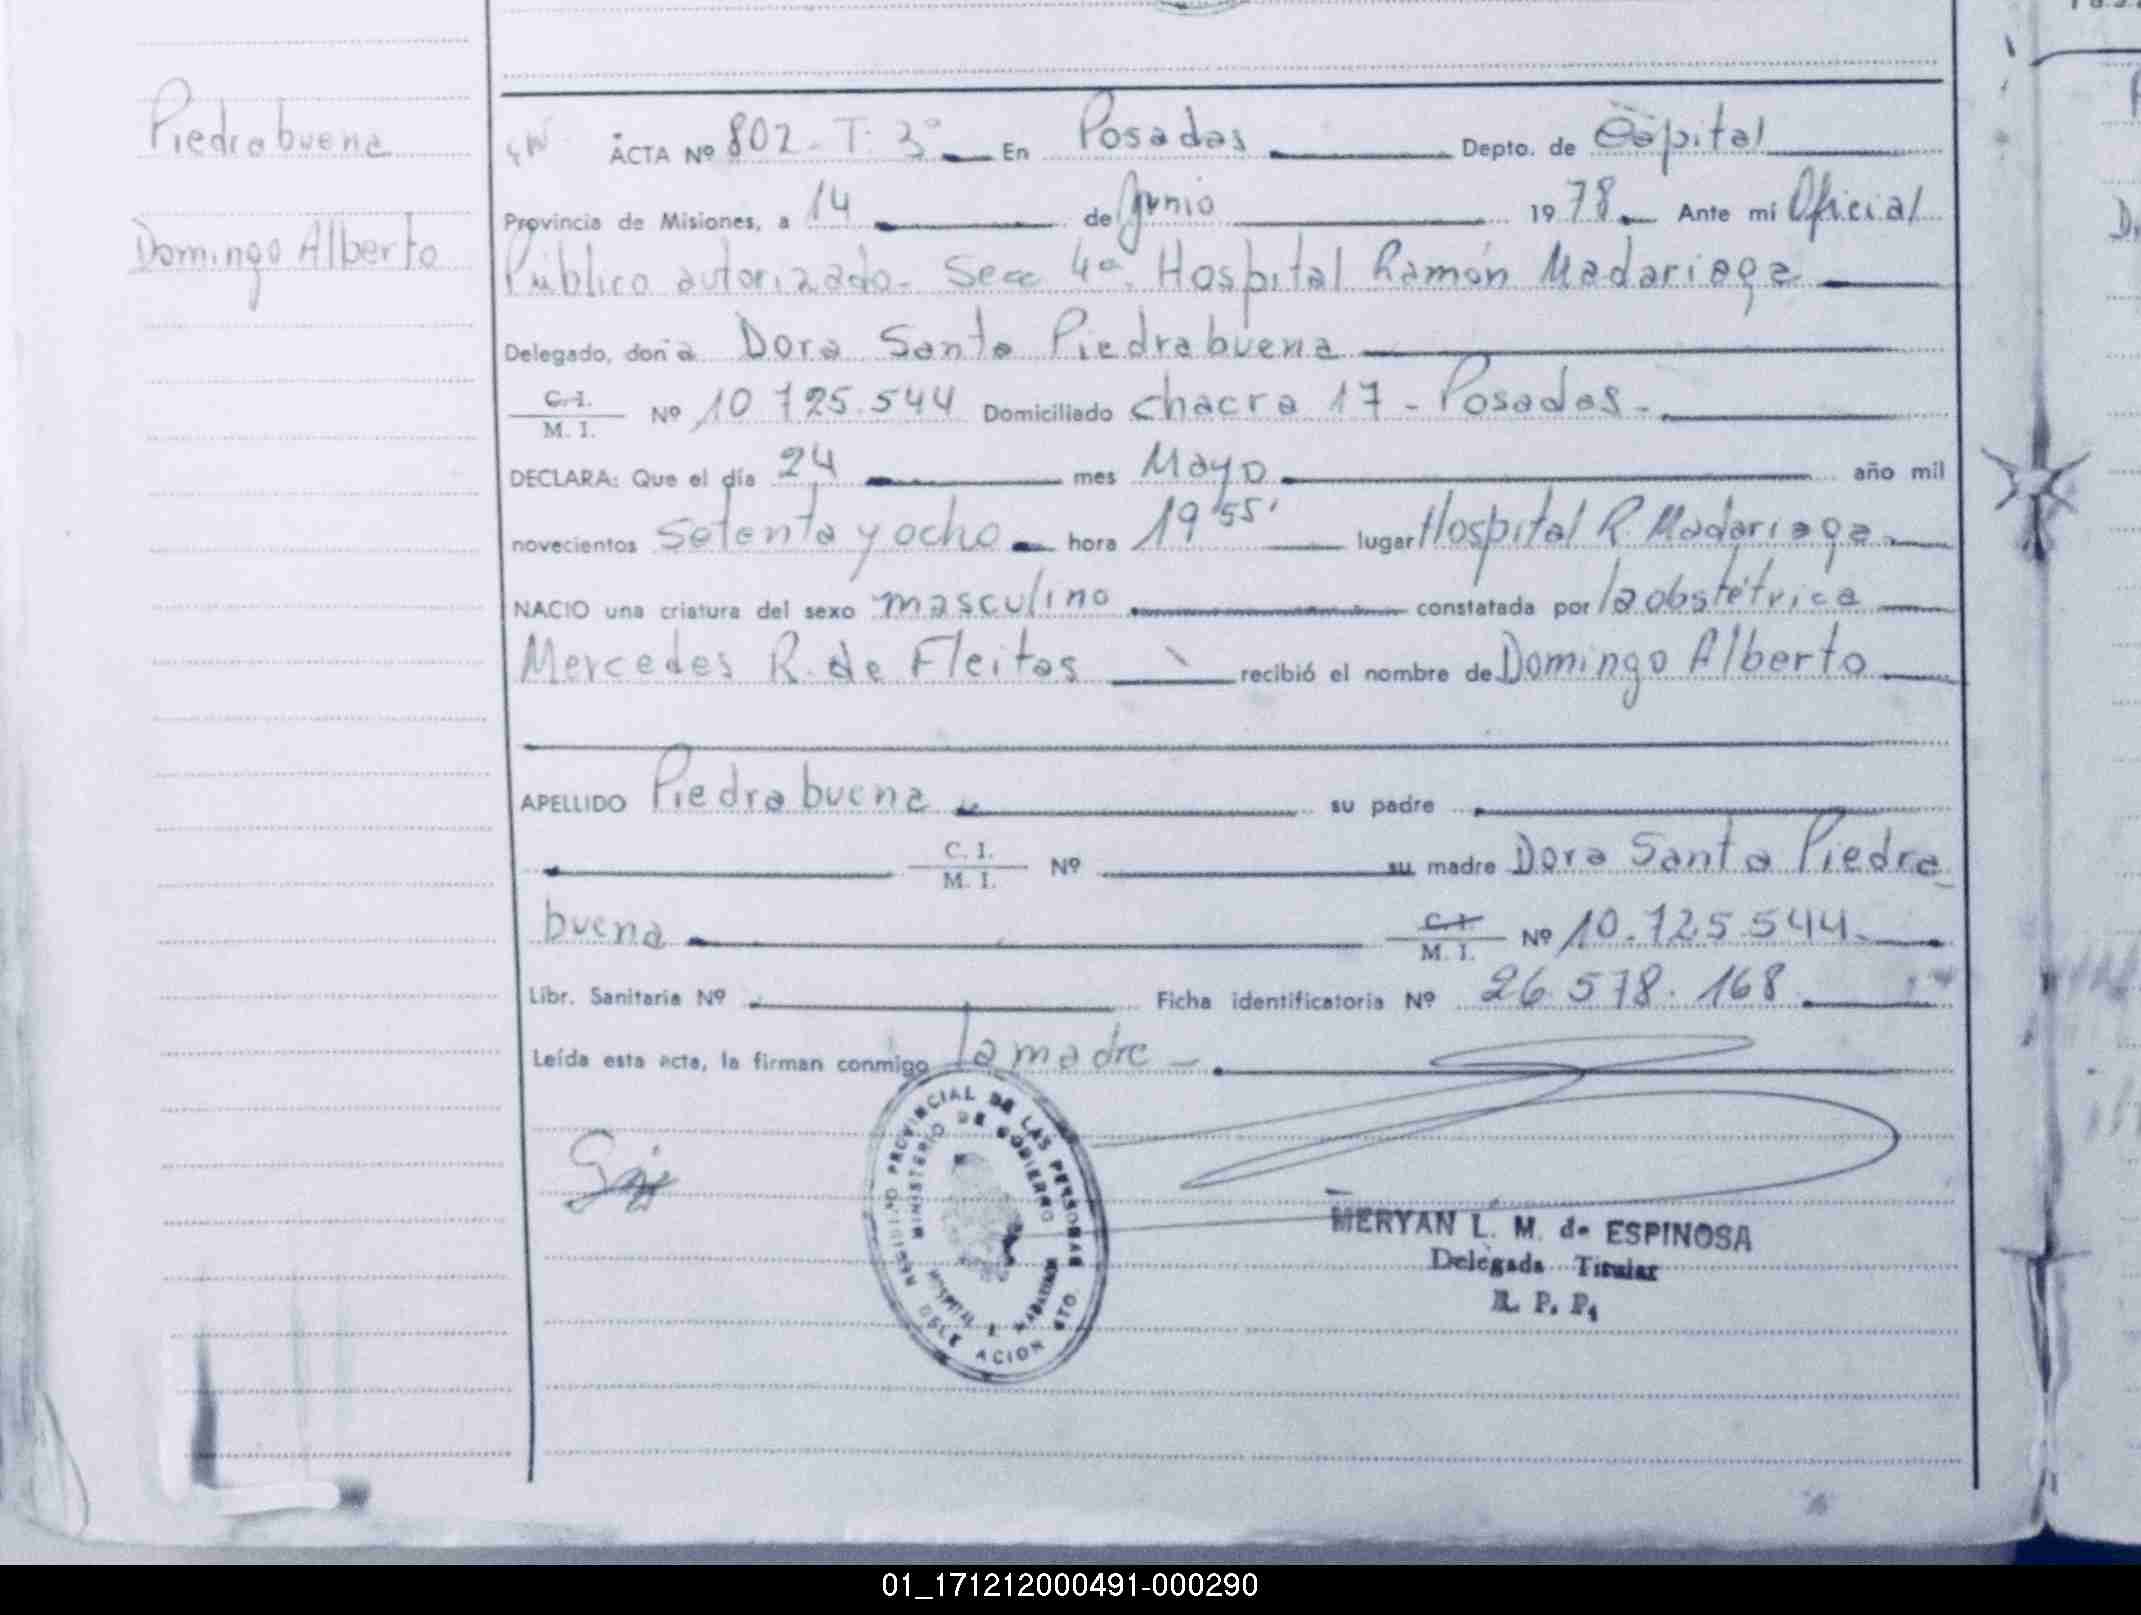 Piedrabuena
Domingo Alberto
ACTA Nº 802 - T. 3º En Posadas Depto. de Capital
Provincia de Misiones, a 14 de Junio 1978 Ante mi Oficial
Público autorizado - Secc 4ª. Hospital Ramón Madariaga
Delegado, doña Dora Santa Piedrabuena
C. I.
M. I. Nº 10.725.544 Domiciliado chacra 17 - Posadas -
DECLARA: Que el día 24 mes Mayo año mil
novecientos setenta y ocho hora 19 55' lugar Hospital R. Madariaga
NACIO una criatura del sexo masculino constatada por la obstétrica
Mercedes R. de Fleitas recibió el nombre de Domingo Alberto
APELLIDO Piedrabuena su padre
C. I.
M. I. Nº su madre Dora Santa Piedra
buena C. I.
M. I. Nº 10.725.544
Libr. Sanitaria Nº Ficha identificatoria Nº 26.578.168
Leída esta acta, la firman conmigo la madre -
REGISTRO PROVINCIAL DE LAS PERSONAS
MINISTERIO DE GOBIERNO
HOSPITAL R. MADARIAGA
DELEGACION
MERYAN L. M. de ESPINOSA
Delegada Titular
R. P. P.
01_171212000491-000290